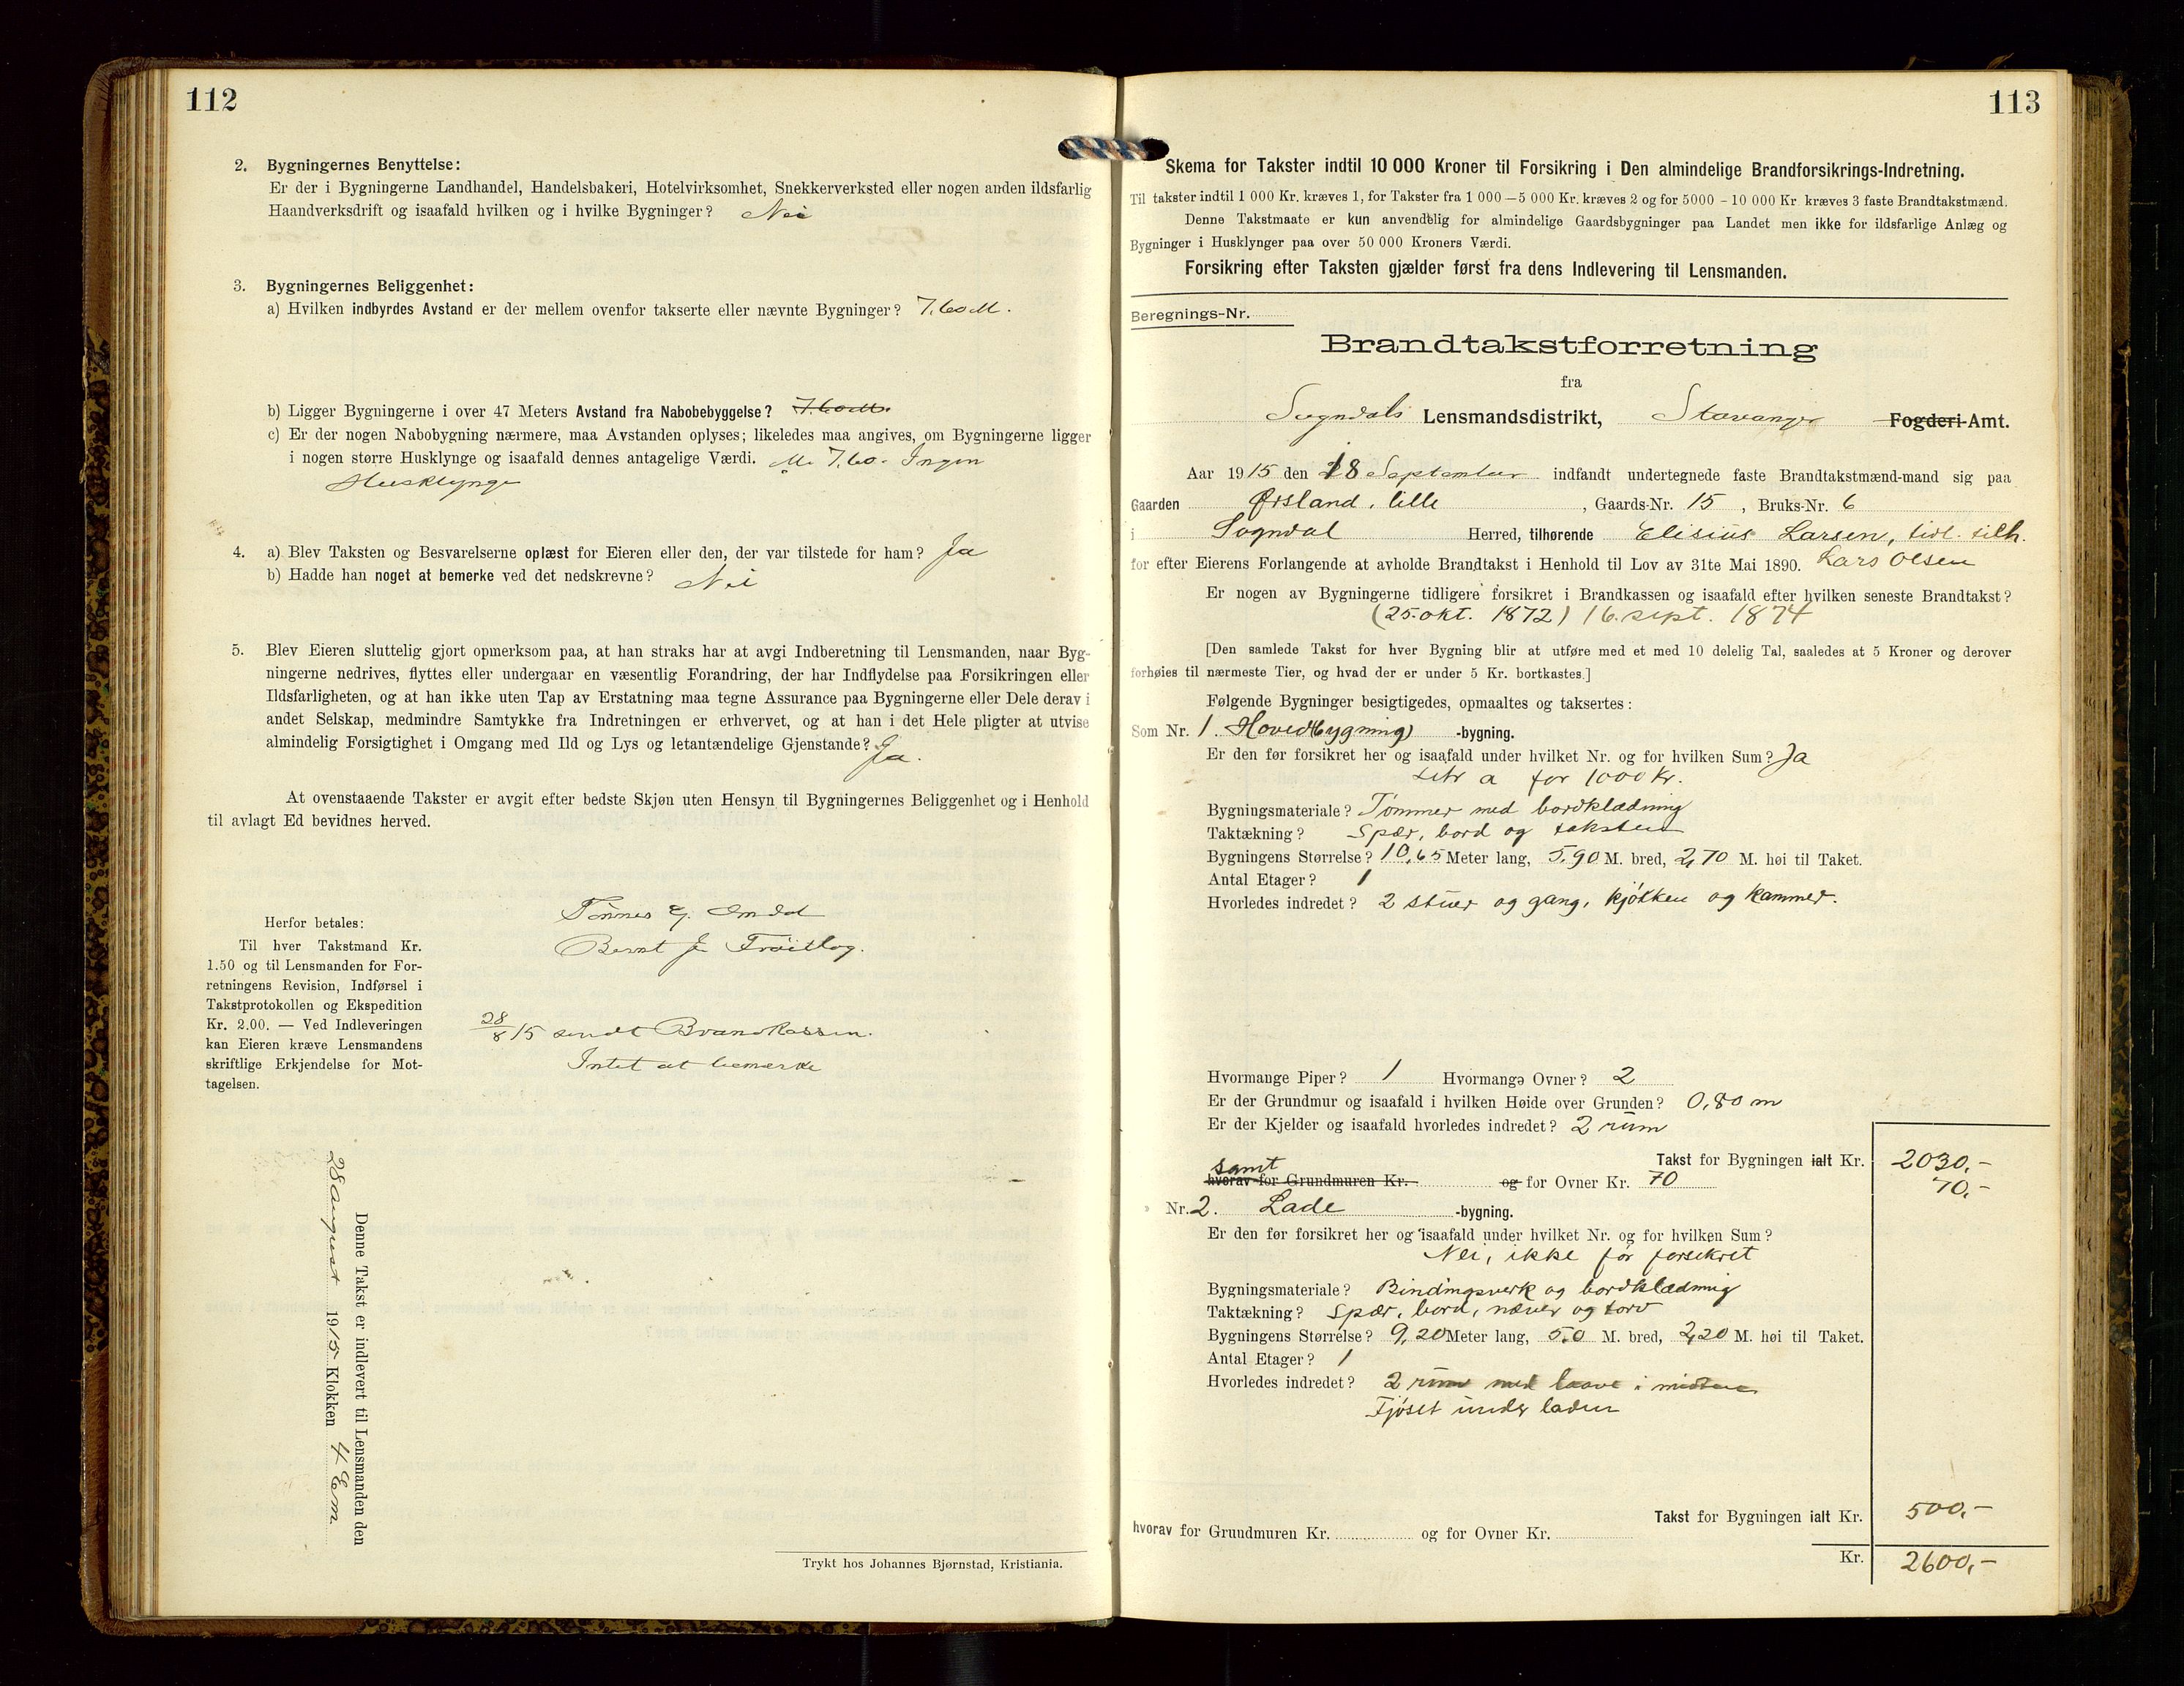 112
2. Bygningernes Benyttelse:
Er der i Bygningerne Landhandel, Handelsbakeri, Hotelvirksomhet, Snekkerverksted eller nogen anden ildsfarlig
Haandverksdrift og isaafald hvilken og i hvilke Bygninger? Nei
3. Bygningernes Beliggenhet:
a) Hvilken indbyrdes Avstand er der mellem ovenfor takserte eller nævnte Bygninger? 7.60 M.
b) Ligger Bygningerne i over 47 Meters Avstand fra Nabobebyggelse? 7.60 M.
c) Er der nogen Nabobygning nærmere, maa Avstanden oplyses; likeledes maa angives, om Bygningerne ligger
i nogen større Husklynge og isaafald dennes antagelige Værdi. M. 7,60. Ingen
Husklynge
4. a) Blev Taksten og Besvarelserne oplæst for Eieren eller den, der var tilstede for ham? Ja
b) Hadde han noget at bemerke ved det nedskrevne? Nei
5. Blev Eieren sluttelig gjort opmerksom paa, at han straks har at avgi Indberetning til Lensmanden, naar Byg-
ningerne nedrives, flyttes eller undergaar en væsentlig Forandring, der har Indflydelse paa Forsikringen eller
Ildsfarligheten, og at han ikke uten Tap av Erstatning maa tegne Assurance paa Bygningerne eller Dele derav i
andet Selskap, medmindre Samtykke fra Indretningen er erhvervet, og at han i det Hele pligter at utvise
almindelig Forsigtighet i Omgang med Ild og Lys og letantændelige Gjenstande? Ja.
At ovenstaaende Takster er avgit efter bedste Skjøn uten Hensyn til Bygningernes Beliggenhet og i Henhold
til avlagt Ed bevidnes herved.
Herfor betales:
Til hver Takstmand Kr.
1.50 og til Lensmanden for For-
retningens Revision, Indførsel i
Takstprotokollen og Ekspedition
Kr. 2.00. — Ved Indleveringen
kan Eieren kræve Lensmandens
skriftlige Erkjendelse for Mot-
tagelsen.
Tönnes G. Omdal
Bernt J.
28/8 15 sendt Brandkassen.
Intet at bemerke
Denne Takst er indlevert til Lensmanden den
28 august 1915 Klokken 4 Em.
Trykt hos Johannes Bjørnstad, Kristiania.
113
Skema for Takster indtil 10 000 Kroner til Forsikring i Den almindelige Brandforsikrings-Indretning.
Til takster indtil 1 000 Kr. kræves 1, for Takster fra 1 000 — 5 000 Kr. kræves 2 og for 5000 - 10 000 Kr. kræves 3 faste Brandtakstmænd.
Denne Takstmaate er kun anvendelig for almindelige Gaardsbygninger paa Landet men ikke for ildsfarlige Anlæg og
Bygninger i Husklynger paa over 50 000 Kroners Værdi.
Forsikring efter Taksten gjælder først fra dens Indlevering til Lensmanden.
Beregnings-Nr.
Brandtakstforretning
fra
Sogndals Lensmandsdistrikt, Stavanger Fogderi-Amt.
Aar 1915 den 18 September indfandt undertegnede faste Brandtakstmænd-mand sig paa
Gaarden Ørsland, lille, Gaards-Nr. 15, Bruks-Nr. 6
i Sogndal Herred, tilhørende Elisius Larsen, tidl. tilh.
for efter Eierens Forlangende at avholde Brandtakst i Henhold til Lov av 31te Mai 1890. Lars Olsen
Er nogen av Bygningerne tidligere forsikret i Brandkassen og isaafald efter hvilken seneste Brandtakst?
(25. okt. 1872) 16. sept. 1874
[Den samlede Takst for hver Bygning blir at utføre med et med 10 delelig Tal, saaledes at 5 Kroner og derover
forhøies til nærmeste Tier, og hvad der er under 5 Kr. bortkastes.]
Følgende Bygninger besigtigedes, opmaaltes og taksertes:
Som Nr. 1. Hoved(bygning) -bygning.
Er den før forsikret her og isaafald under hvilket Nr. og for hvilken Sum? Ja
Litr a for 1000 Kr.
Bygningsmateriale? Tømmer med bordklædning
Taktækning? Spær, bord og taksten
Bygningens Størrelse? 10,65 Meter lang, 5,90 M. bred, 2,70 M. høi til Taket.
Antal Etager? 1
Hvorledes indredet? 2 stuer og gang, kjøkken og kammer.
Hvormange Piper? 1 Hvormange Ovner? 2
Er der Grundmur og isaafald i hvilken Høide over Grunden? 0,80 m
Er der Kjelder og isaafald hvorledes indredet? 2 rum
Takst for Bygningen ialt Kr. 2030,-
samt
hvorav for Grundmuren Kr. og for Ovner Kr. 70 70,-
Nr. 2. Lade -bygning.
Er den før forsikret her og isaafald under hvilket Nr. og for hvilken Sum?
Nei, ikke før forsikret
Bygningsmateriale? Bindingsverk og bordklædning
Taktækning? Spær, bord, næver og torv
Bygningens Størrelse? 9,20 Meter lang, 5,0 M. bred, 2,20 M. høi til Taket.
Antal Etager? 1
Hvorledes indredet? 2 rum med laave i midten
Fjøset under laden
Takst for Bygningen ialt Kr. 500,-
hvorav for Grundmuren Kr. og for Ovner Kr.
Kr. 2600,-